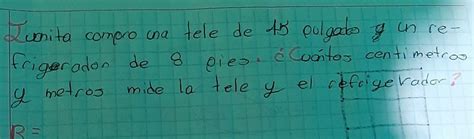 Lumita compro una tele de 45 pulgadas y un re-
frigerador de 8 pies. ¿Cuántos centimetros
y metros mide la tele y el refrigerador?
R=